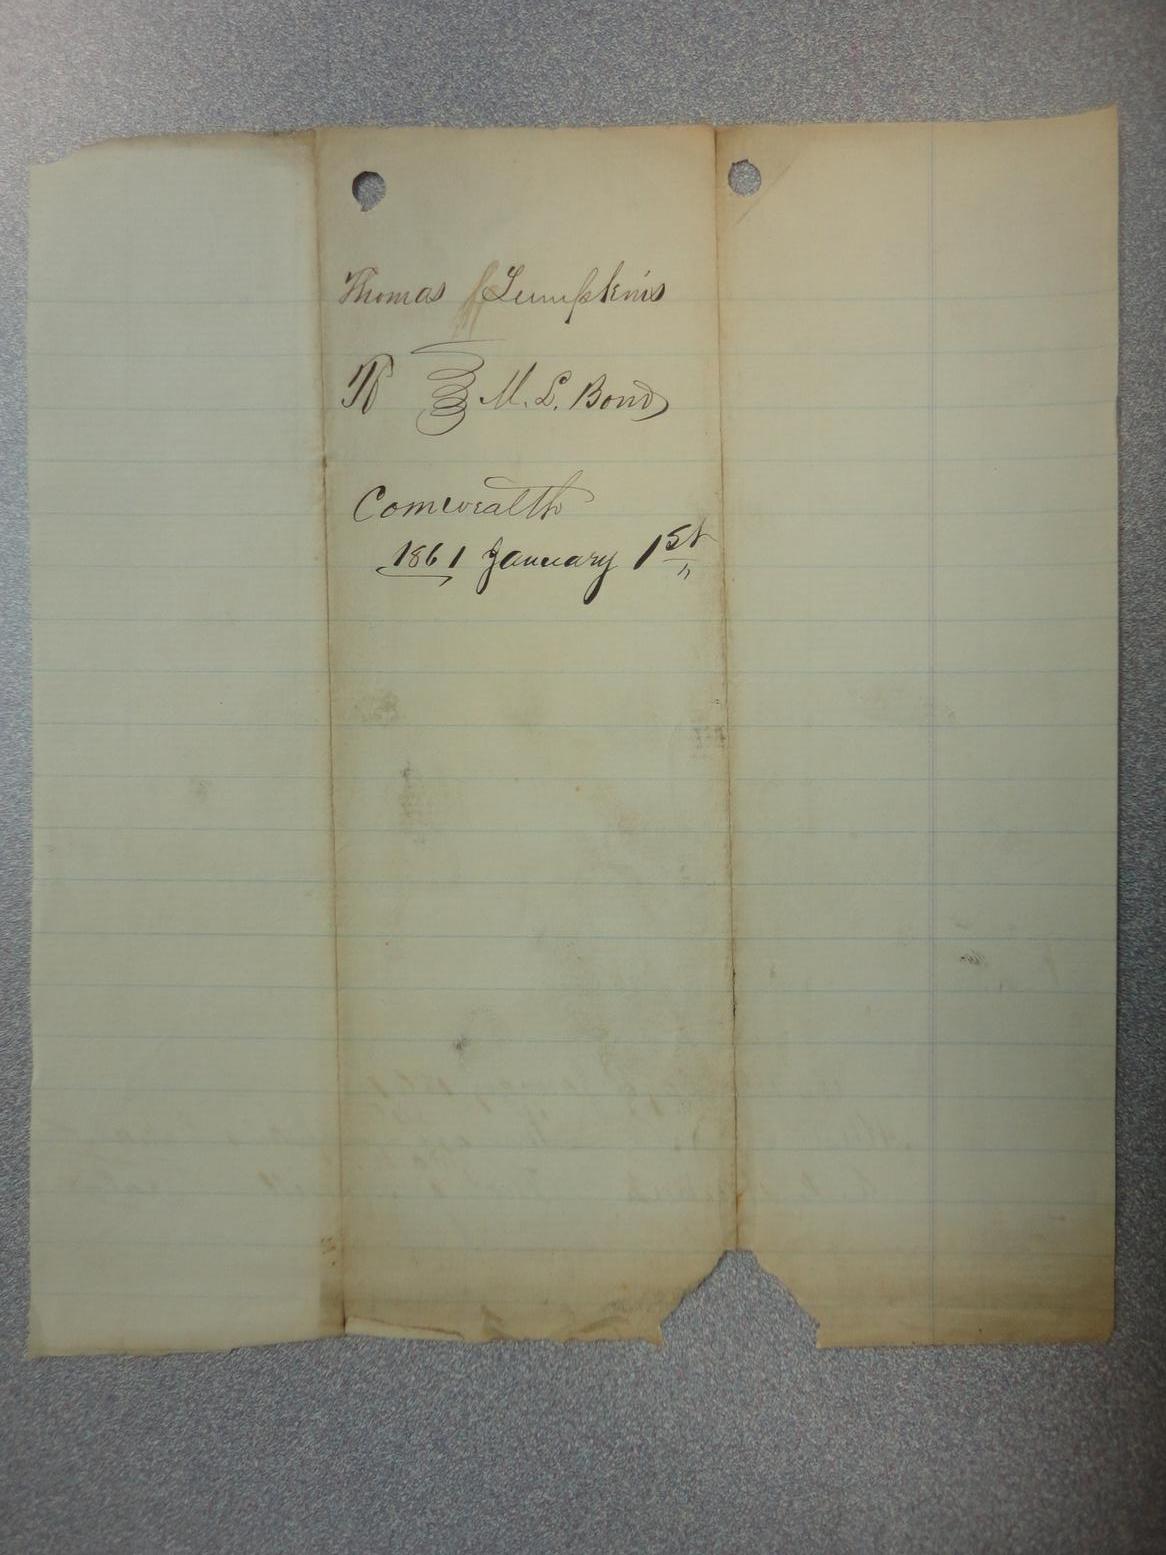 Thomas Lumpkins
To M. L. Bond
Comwealth
1861 January 1st